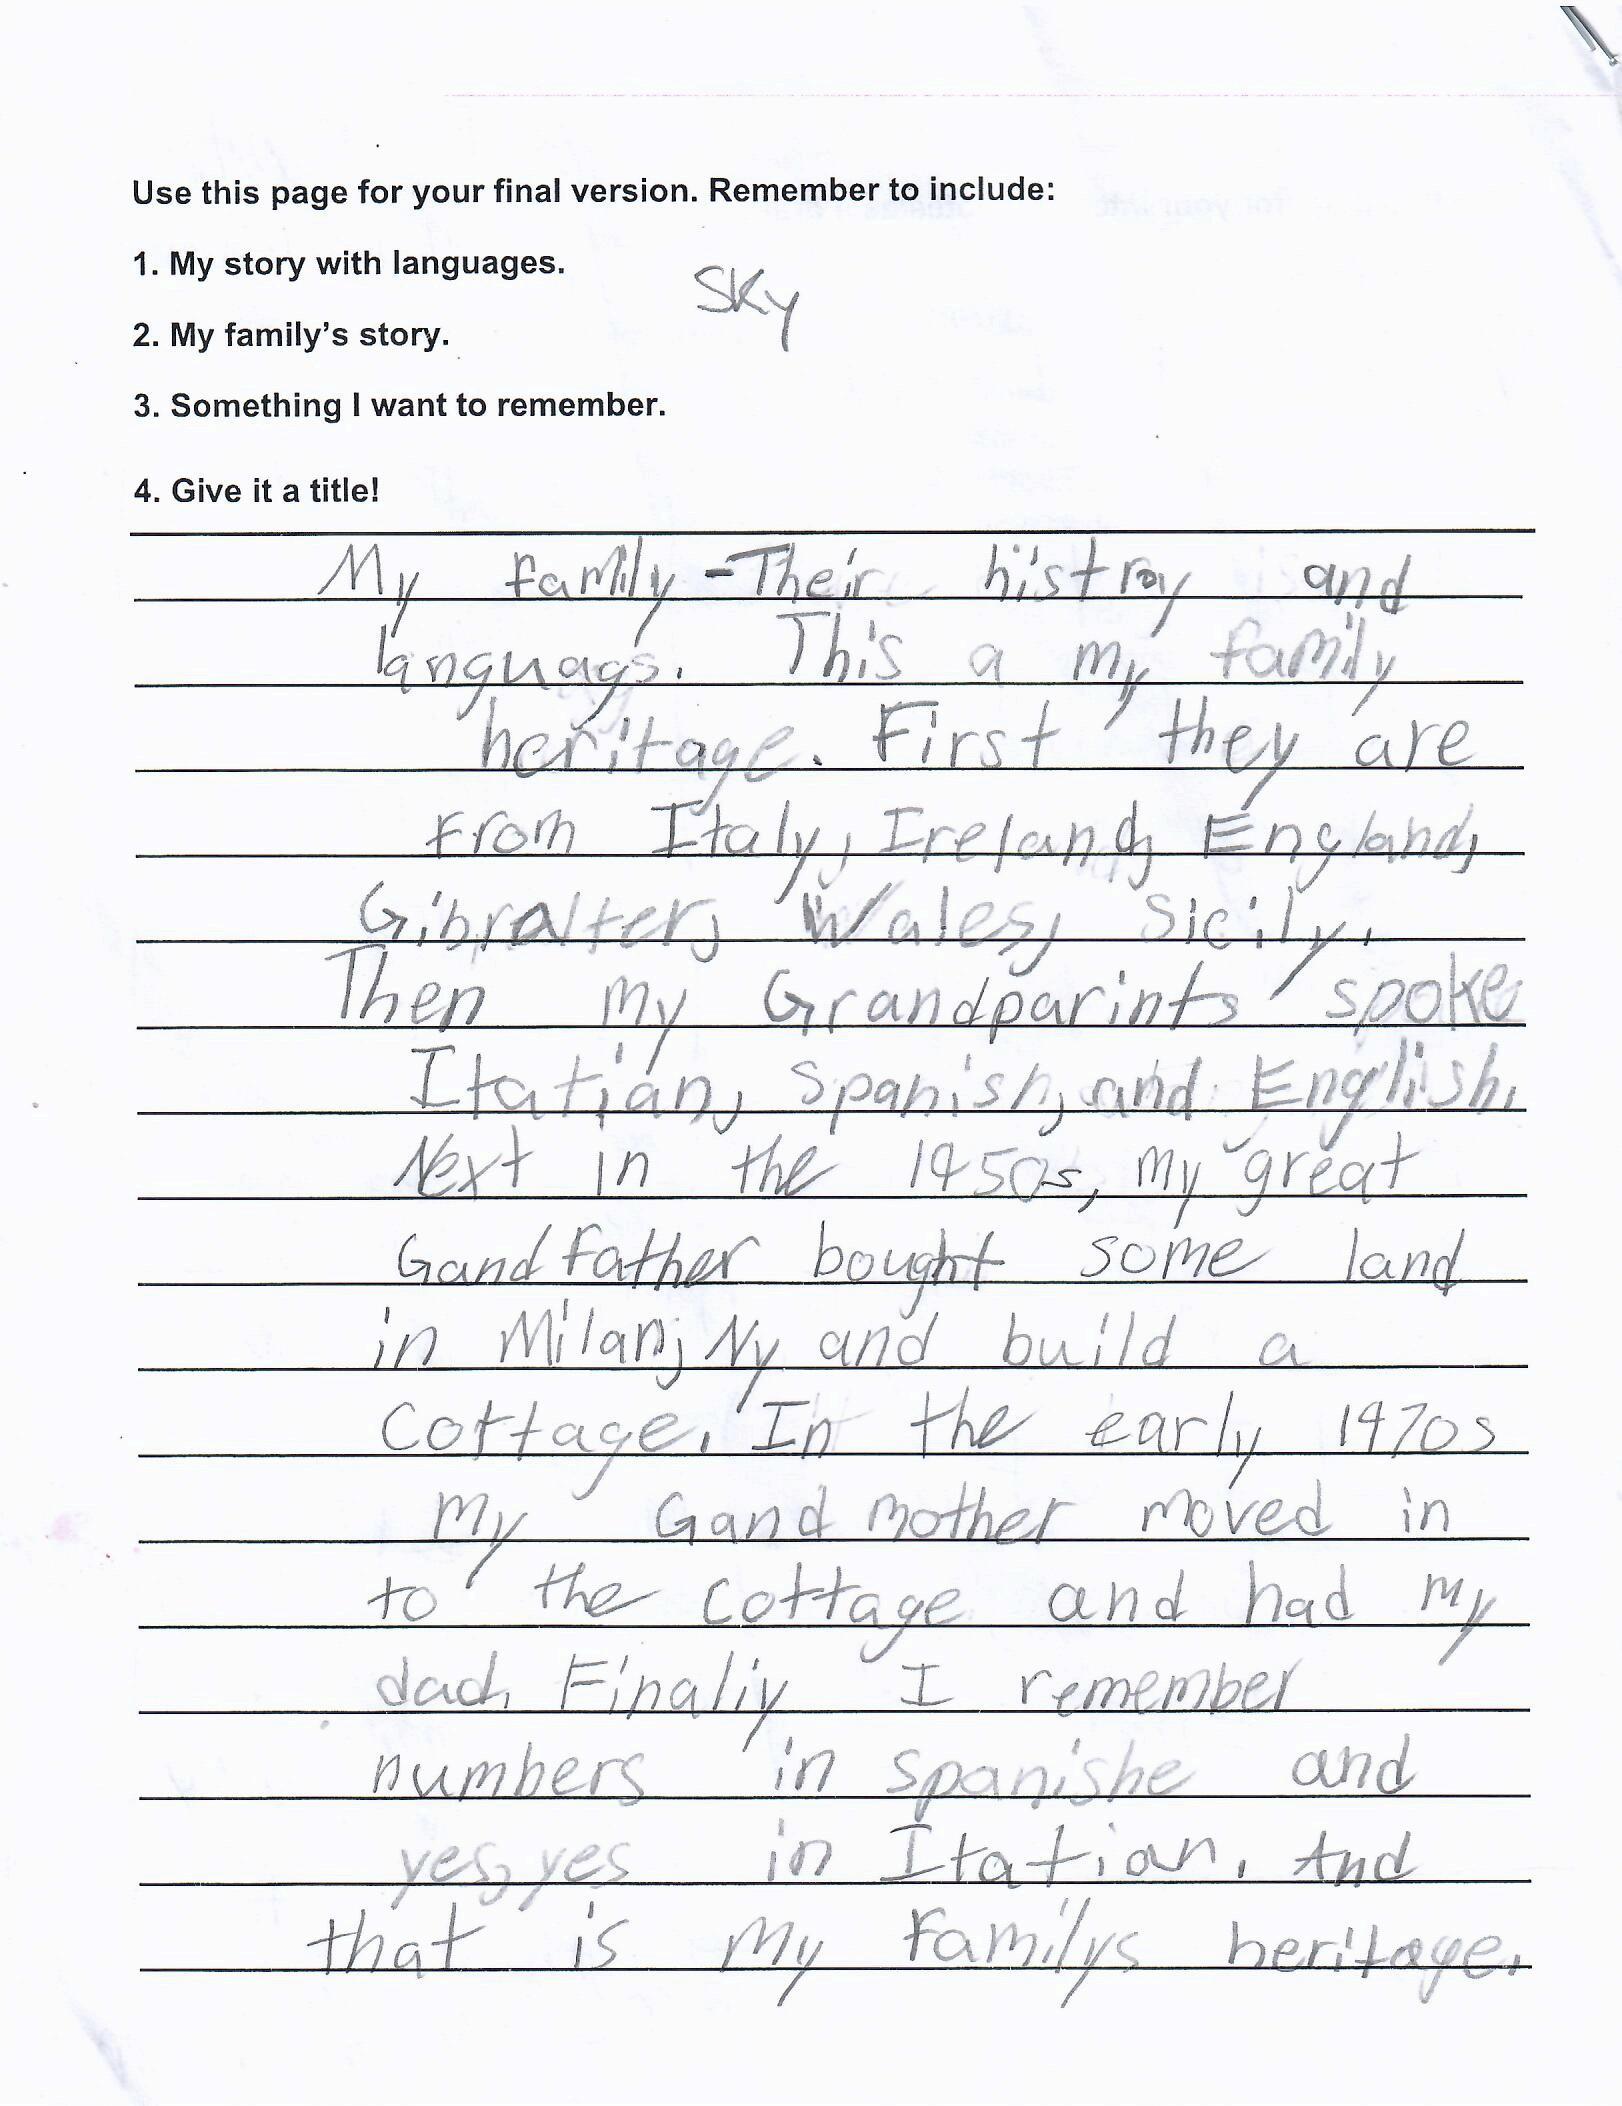 Use this page for your final version. Remember to include:
1. My story with languages.
Sky
2. My family's story.
3. Something I want to remember.
4. Give it a title!
My family - Their histroy and
languags. This a my family
heritage. First they are
from Italy, Ireland, England,
Gibralter, Wales, Sicily.
Then my Grandparints spoke
Itatian, Spanish, and English.
Next in the 1950s, my great
Gandfather bought some land
in Milan, Ny and build a
Cottage. In the early 1970s
my Gandmother moved in
to the cottage and had my
dad. Finaliy I remember
numbers in spanishe and
yes, yes in Itatian. And
that is my familys heritage.